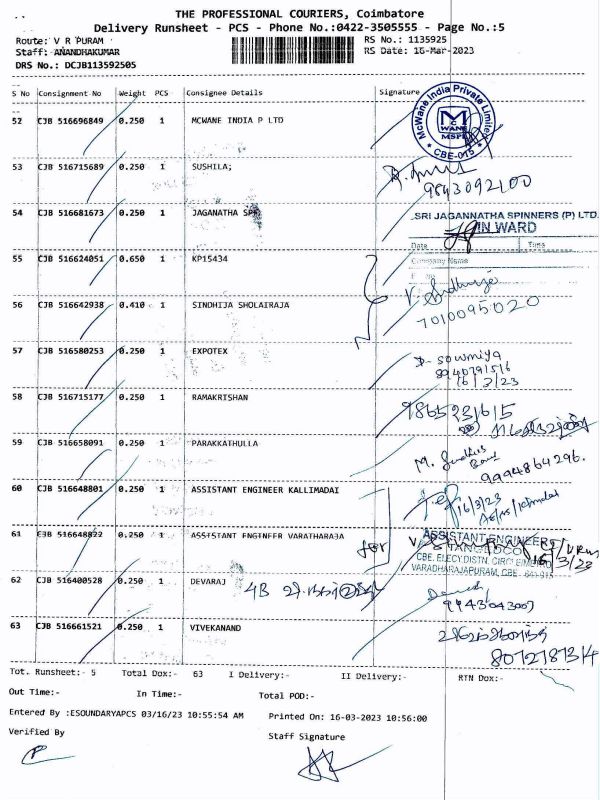 THE PROFESSIONAL COURIERS, Coimbatore
Delivery Runsheet - PCS - Phone No.:0422-3505555 - Page No.:5
Route: V R PURAM
RS No.: 1135925
Staff: ANANDHAKUMAR
RS Date: 16-Mar-2023
DRS No.: DCJB113592505
S No Consignment No Weight PCS Consignee Details Signature
52 CJB 516696849 0.250 1 MCWANE INDIA P LTD
McWane India Private Limited
McWANE
* CBE-015 *
53 CJB 516715689 0.250 1 SUSHILA;
9843092100
54 CJB 516681673 0.250 1 JAGANATHA SPR
SRI JAGANNATHA SPINNERS (P) LTD.
IN WARD
Date Time
55 CJB 516624051 0.650 1 KP15434
Company Name
56 CJB 516642938 0.410 1 SINDHIJA SHOLAIRAJA
7010095020
57 CJB 516580253 0.250 1 EXPOTEX
D. Sowmiya
8940791516
16/3/23
58 CJB 516715177 0.250 1 RAMAKRISHAN
59 CJB 516658091 0.250 1 PARAKKATHULLA
9994864296.
60 CJB 516648801 0.250 1 ASSISTANT ENGINEER KALLIMADAI
16/3/23
61 CJB 516648822 0.250 1 ASSISTANT ENGINEER VARATHARAJA
for
ASSISTANT ENGINEER
TANGEDCO
CBE. ELECY.DISTN. CIRCLE/METRO
VARADHARAJAPURAM, CBE - 641 015
62 CJB 516400528 0.250 1 DEVARAJ
63 CJB 516661521 0.250 1 VIVEKANAND
8072787314
Tot. Runsheet:- 5 Total Dox:- 63 I Delivery:- II Delivery:- RTN Dox:-
Out Time:- In Time:- Total POD:-
Entered By :ESOUNDARYAPCS 03/16/23 10:55:54 AM Printed On: 16-03-2023 10:56:00
Verified By Staff Signature